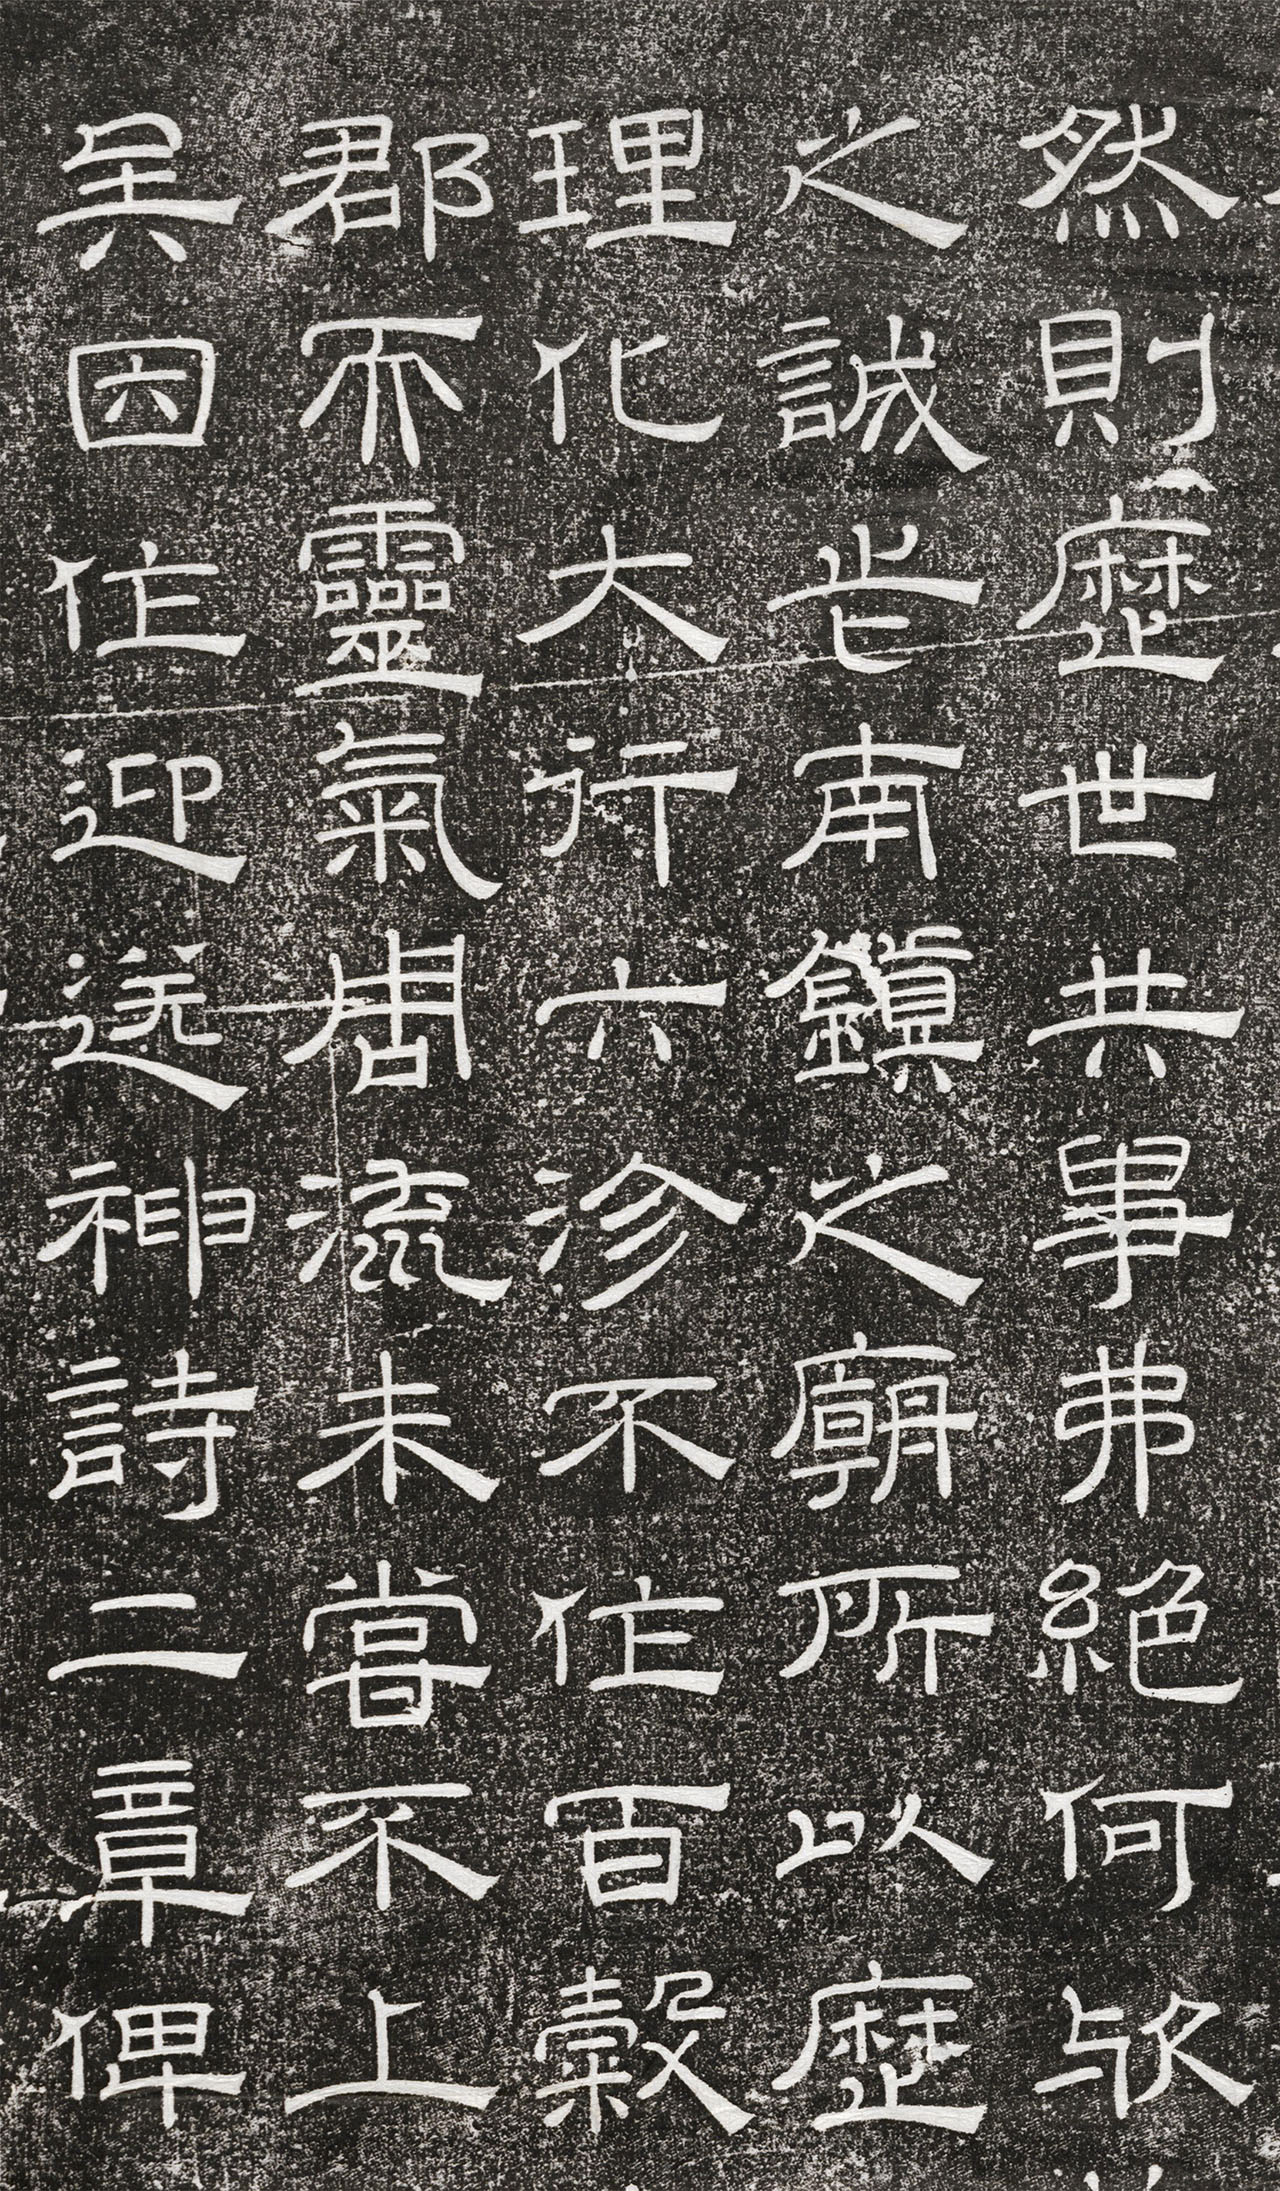 然則歷世共事弗絕何欤
之誠此南鎮之廟所以歷
理化大行六沴不作百穀
郡而靈氣周流未嘗不上
矣因作迎送神詩二章俾